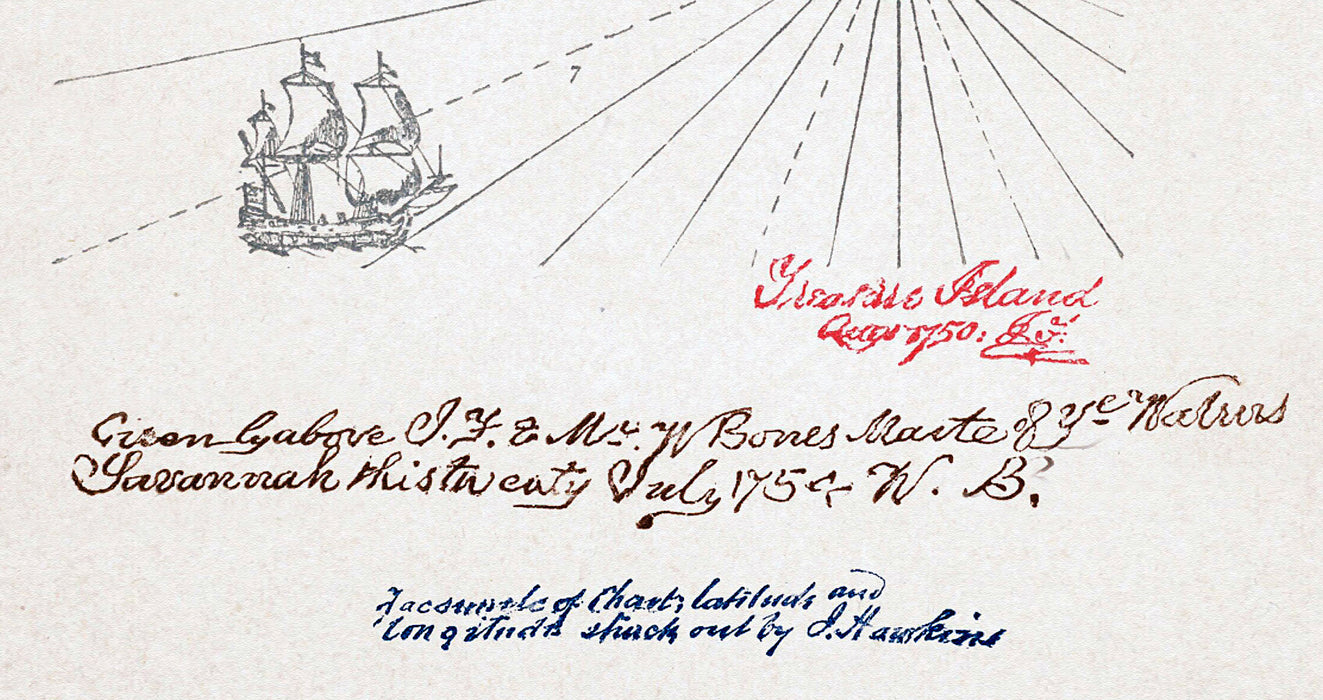 Treasure Island
Augt 1750: J.F.
Given by above J.F. & Mr. W Bones Maste of Ye Walrus
Savannah this twenty July 1754 W. B.
Facsimile of Chart, latitude and
longitude struck out by J. Hawkins